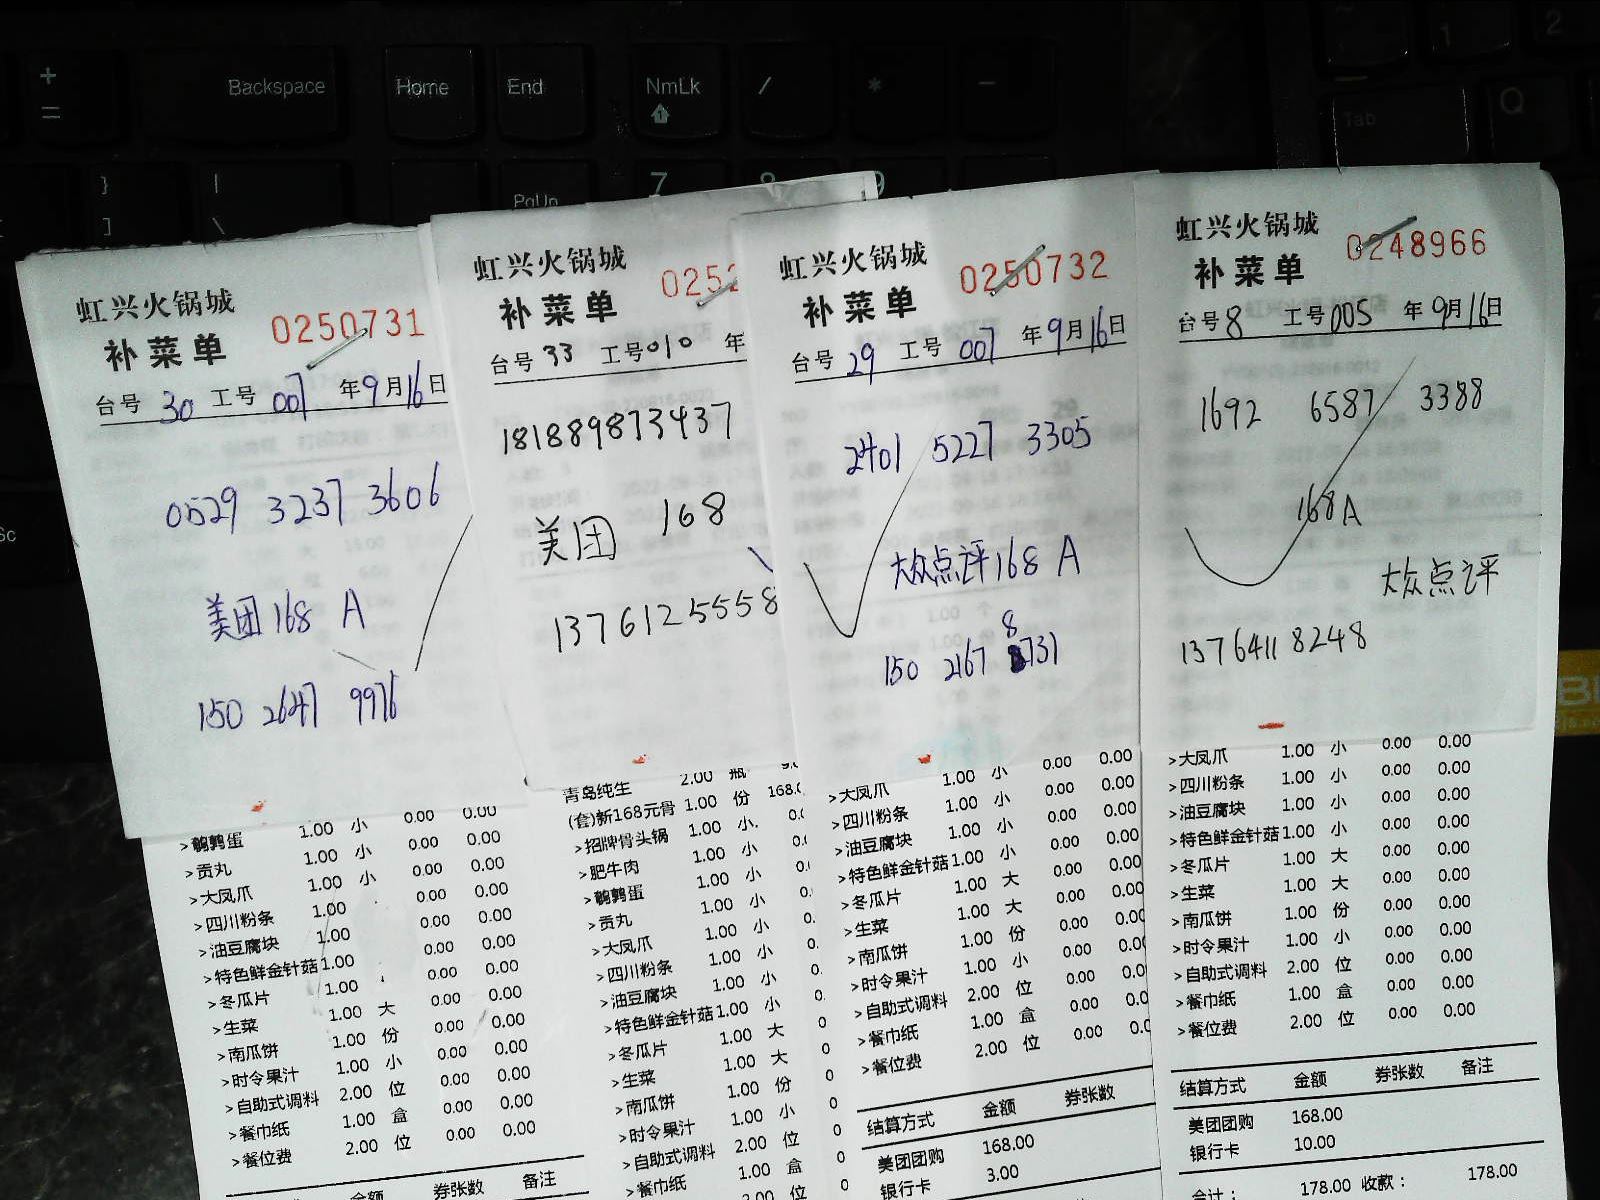 Backspace
Home
End
NmLk
/
*
-
PgUp
7
8
9
Tab
Q
1
2
虹兴火锅城
补菜单
0250731
台号 30 工号 007 年9月16日
0529 3237 3606
美团168 A
150 2647 9976
>鹌鹑蛋 1.00 小 0.00 0.00
>贡丸 1.00 小 0.00 0.00
>大凤爪 1.00 小 0.00 0.00
>四川粉条 1.00 0.00 0.00
>油豆腐块 1.00 0.00 0.00
>特色鲜金针菇1.00 0.00 0.00
>冬瓜片 1.00 0.00 0.00
>生菜 1.00 大 0.00 0.00
>南瓜饼 1.00 份 0.00 0.00
>时令果汁 1.00 小 0.00 0.00
>自助式调料 2.00 位 0.00 0.00
>餐巾纸 1.00 盒 0.00 0.00
>餐位费 2.00 位 0.00 0.00
金额 券张数 备注
虹兴火锅城
补菜单
0252
台号 33 工号010 年
181889873437
美团 168
13761255558
青岛纯生 2.00 瓶
(套)新168元骨 1.00 份 168.0
>招牌骨头锅 1.00 小
>肥牛肉 1.00 小
>鹌鹑蛋 1.00 小
>贡丸 1.00 小
>大凤爪 1.00 小
>四川粉条 1.00 小
>油豆腐块 1.00 小
>特色鲜金针菇1.00 小
>冬瓜片 1.00 大
>生菜 1.00 大
>南瓜饼 1.00 份
>时令果汁 1.00 小
>自助式调料 2.00 位
>餐巾纸 1.00 盒
2.00 位
虹兴火锅城
补菜单
0250732
台号 29 工号 007 年9月16日
2401 5227 3305
大众点评168 A
150 2167 8731
>大凤爪 1.00 小 0.00 0.00
>四川粉条 1.00 小 0.00 0.00
>油豆腐块 1.00 小 0.00 0.00
>特色鲜金针菇1.00 小 0.00 0.00
>冬瓜片 1.00 大 0.00 0.00
>生菜 1.00 大 0.00 0.00
>南瓜饼 1.00 份 0.00 0.00
>时令果汁 1.00 小 0.00 0.00
>自助式调料 2.00 位 0.00 0.00
>餐巾纸 1.00 盒 0.00 0.00
>餐位费 2.00 位 0.00 0.00
结算方式 金额 券张数
美团团购 168.00
银行卡 3.00
虹兴火锅城
补菜单
0248966
台号8 工号005 年9月16日
1692 6587 3388
168A
大众点评
13764118248
>大凤爪 1.00 小 0.00 0.00
>四川粉条 1.00 小 0.00 0.00
>油豆腐块 1.00 小 0.00 0.00
>特色鲜金针菇1.00 小 0.00 0.00
>冬瓜片 1.00 大 0.00 0.00
>生菜 1.00 大 0.00 0.00
>南瓜饼 1.00 份 0.00 0.00
>时令果汁 1.00 小 0.00 0.00
>自助式调料 2.00 位 0.00 0.00
>餐巾纸 1.00 盒 0.00 0.00
>餐位费 2.00 位 0.00 0.00
结算方式 金额 券张数 备注
美团团购 168.00
银行卡 10.00
合计： 178.00 收款： 178.00